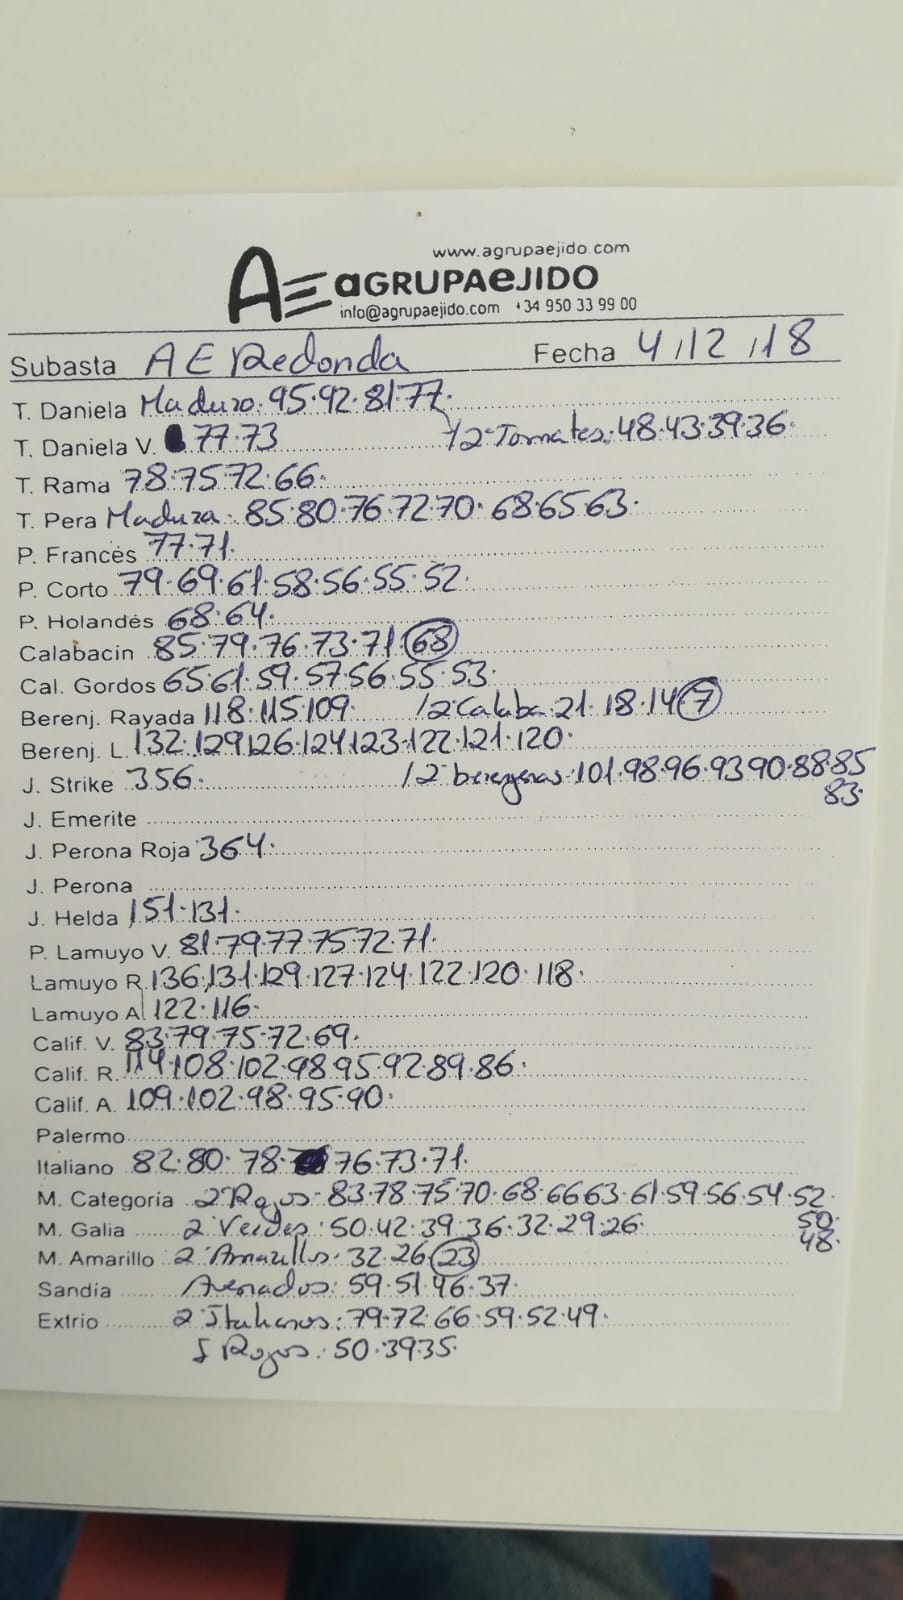 www.agrupaejido.com
AE aGRUPAeJIDO
info@agrupaejido.com +34 950 33 99 00
Subasta AE Redonda Fecha 4/12/18
T. Daniela Maduro. 95.92.81.77.
T. Daniela V. 77.73 /2ª Tomates. 48.43.39.36.
T. Rama 78.75.72.66.
T. Pera Madura. 85.80.76.72.70.68.65.63.
P. Francés 77.71.
P. Corto 79.69.61.58.56.55.52.
P. Holandés 68.64.
Calabacin 85.79.76.73.71.68
Cal. Gordos 65.61.59.57.56.55.53.
Berenj. Rayada 118.115.109. /2 Calaba. 21.18.14.7
Berenj. L. 132.129.126.124.123.122.121.120.
J. Strike 356. /2ª berenjenas. 101.98.96.93.90.88.85
83.
J. Emerite
J. Perona Roja 364.
J. Perona
J. Helda 151.131.
P. Lamuyo V. 81.79.77.75.72.71.
Lamuyo R. 136.131.129.127.124.122.120.118.
Lamuyo A. 122.116.
Calif. V. 83.79.75.72.69.
Calif. R. 114.108.102.98.95.92.89.86.
Calif. A. 109.102.98.95.90.
Palermo
Italiano 82.80.78. 76.73.71.
M. Categoría 2ª Rojos. 83.78.75.70.68.66.63.61.59.56.54.52.
50.
48.
M. Galia 2 Verdes: 50.42.39.36.32.29.26.
M. Amarillo 2ª Amarillos. 32.26.23
Sandía Asenados: 59.51.46.37.
Extrio 2 Italianos: 79.72.66.59.52.49.
Rojos. 50.39.35.